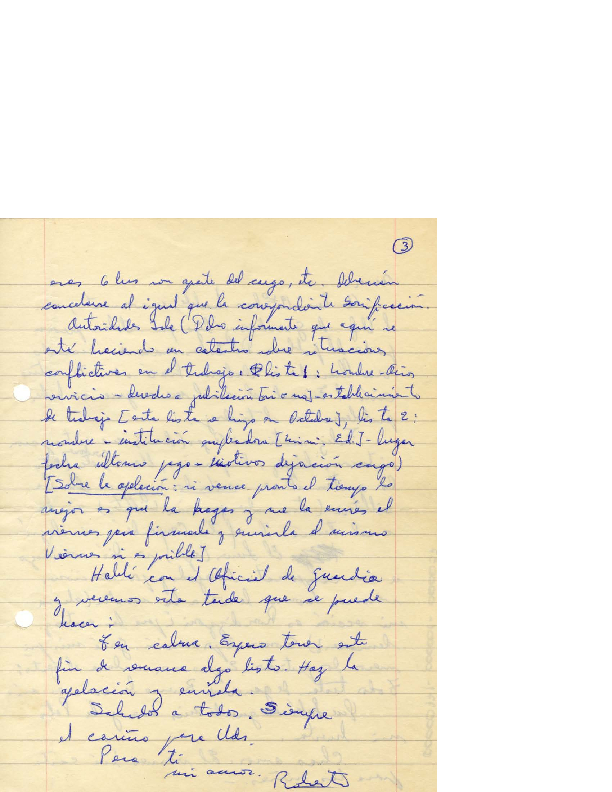 3
esas 6 hrs son aparte del cargo, etc. Deberían
cancelarse al igual que la correspondiente bonificación.
Autoridades Isla (Debo informarte que aquí se
está haciendo un catastro sobre situaciones
conflictivas en el trabajo: lista 1: nombre - años
servicio - derecho a jubilación [si o no] - establecimiento
de trabajo [esta lista se hizo en Octubre], lista 2:
nombre - institución empleadora [mini. Ed.] - lugar
fecha último pago - motivos dejación cargo)
[Sobre la apelación: si vence pronto el tiempo lo
mejor es que la hagas y me la envíes el
viernes para firmarla y enviarla el mismo
Viernes si es posible]
Hablé con el Oficial de Guardia
y veremos esta tarde que se puede
hacer:
Ten calma. Espero tener este
fin de semana algo listo. Haz la
apelación y envíala.
Saludos a todos. Siempre
el cariño para Uds.
Para ti
mi amor. Roberto